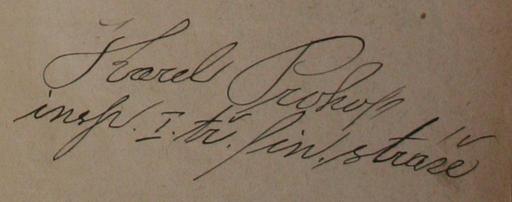 Karel Prokop
insp. I. tř. fin. stráže